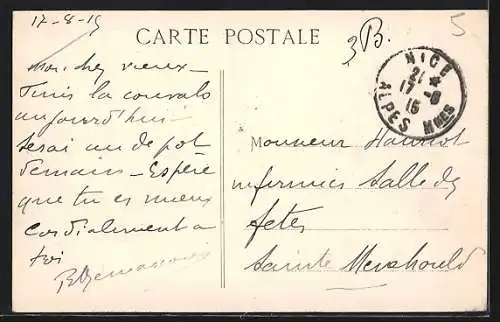 17-8-15
CARTE POSTALE
3B.
5
NICE
21 *
17 -8
15
ALPES MMES
Mon cher vieux -
Finis la convalo
aujourd'hui -
serai au dépot
demain - Espère
que tu es mieux
Cordialement a
toi
Monsieur
infirmier Salle des
fetes
Sainte Menehould